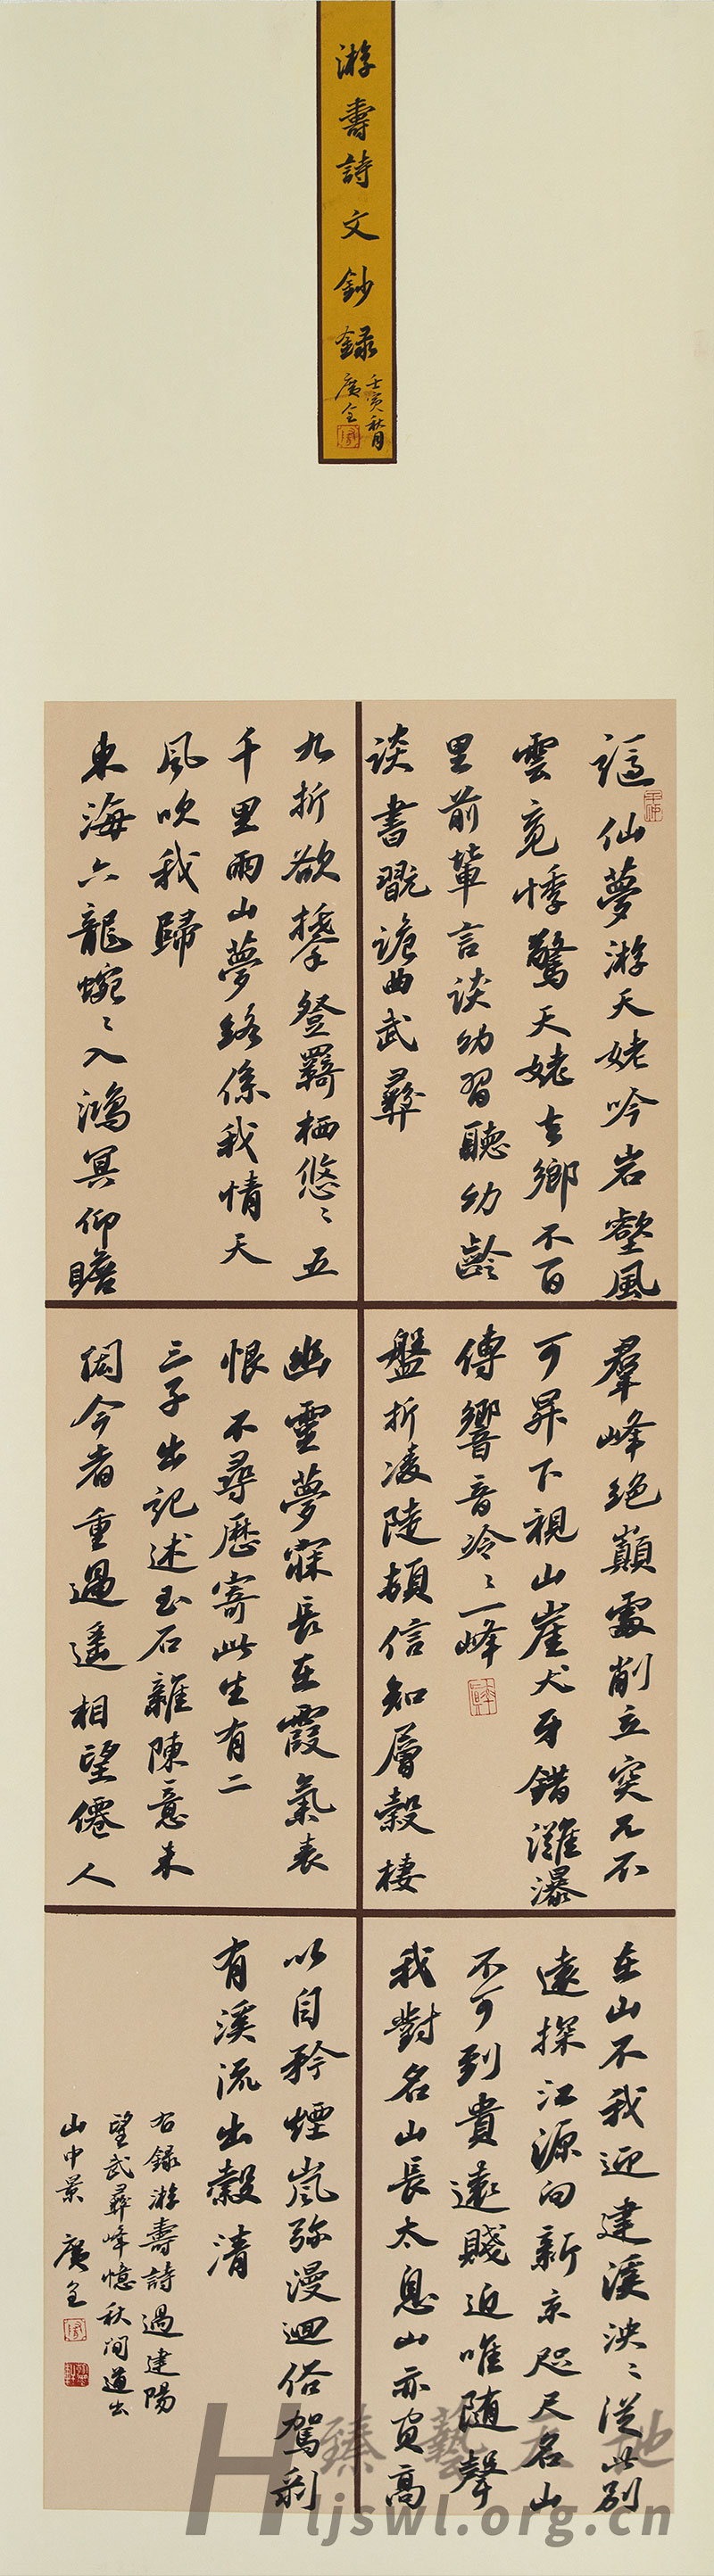 游壽詩文鈔錄
壬寅秋月
廣全
謫仙夢游天姥吟岩壑風
雲竟悸驚天姥去鄉不百
里前輩言談幼習聽幼齡
談書翫詭曲武彝
九折欲攀登羈栖悠々五
千里雨山夢銘係我情天
風吹我歸
東海六龍蜿々入鴻冥仰瞻
羣峰絕巔處削立突兀不
可昇下視山崖犬牙錯灘瀑
傳響音泠々一峰
盤折凌陡頓信知層穀棲
幽靈夢寐長在霞氣表
恨不尋歷寄此生有二
三子出記述玉石雜陳意未
闊今者重過遙相望僊人
在山不我迎建溪泱々從此別
遠探江源向新京咫尺名山
不可到貴遠賤近唯隨聲
我對名山長太息山亦寘高
以自矜煙嵐弥漫迴俗駕剩
有溪流出穀清
右錄游壽詩過建陽
望武彝峰憶秋間道出
山中景 廣全
臻藝天地
Hljswl.org.cn